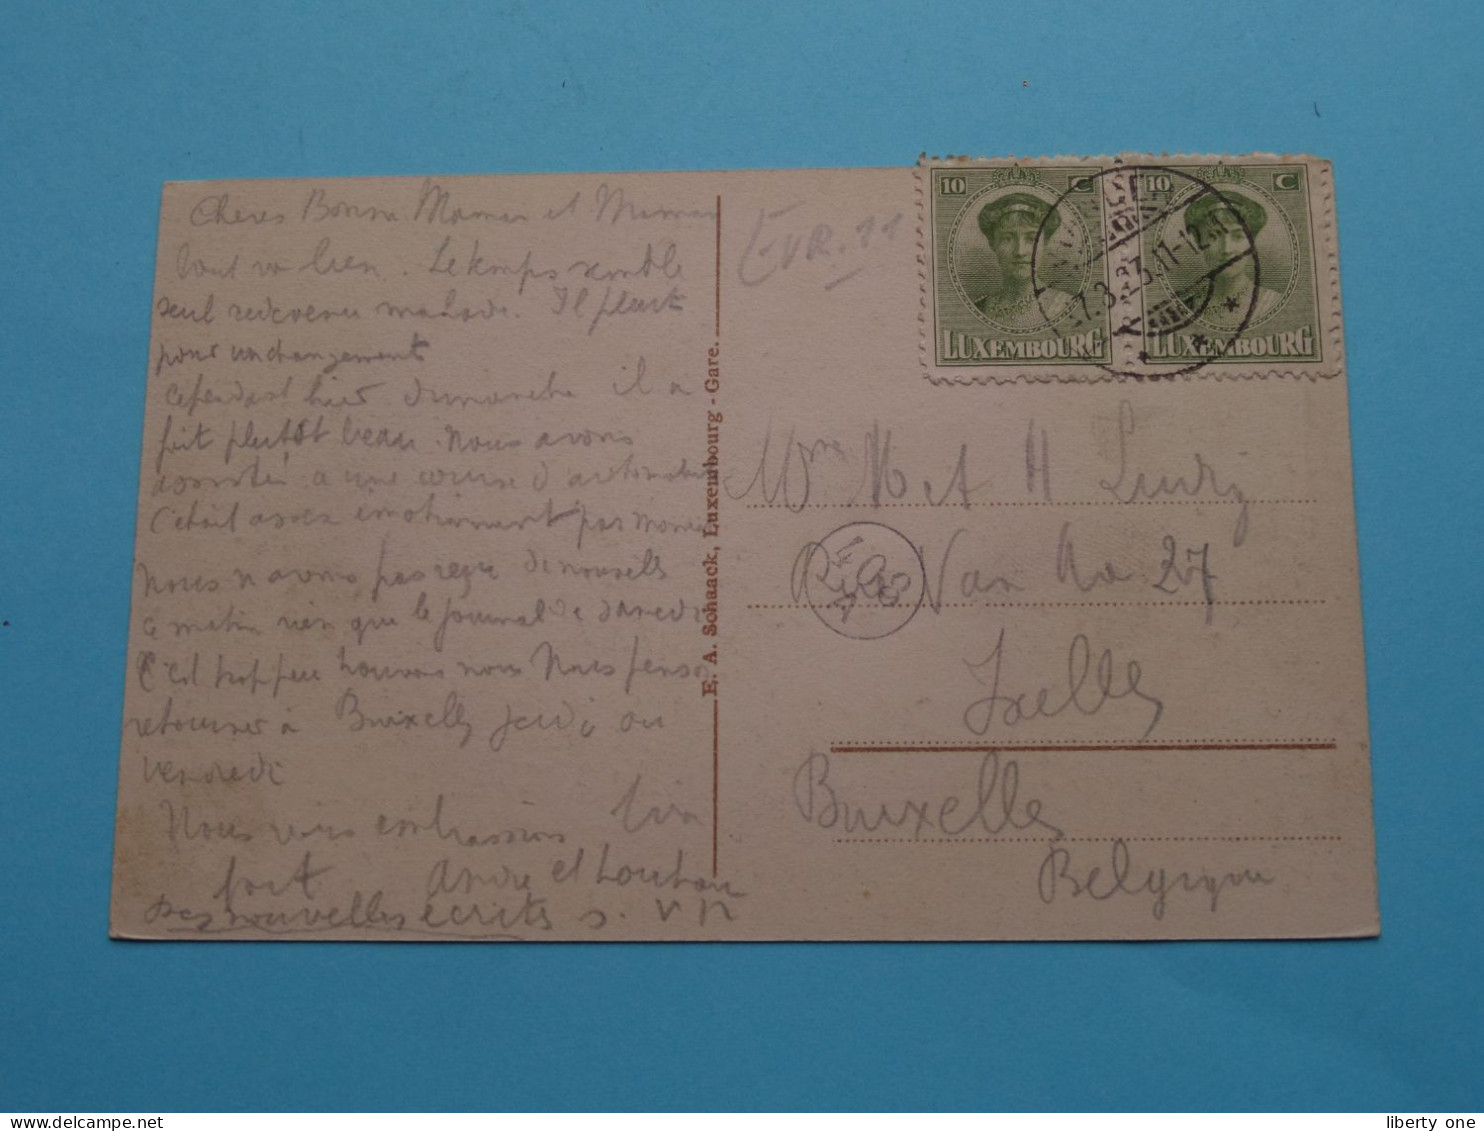 Chères Bonne Maman et Maman
Tout va bien. Le temps semble
seul redevenu malade. Il pleut
pour un changement
Cependant hier dimanche il a
fait plutôt beau. Nous avons
assisté à une course d'automobiles
C'était assez émotionnant pas
Nous n'avons pas reçu de nouvelles
ce matin rien que le journal de samedi
C'est trop peu trouvons nous Nous pensons
retourner à Bruxelles jeudi ou
vendredi
Nous vous embrassons bien
fort André et
Des nouvelles écrites s. v p
E. A. Schaack, Luxembourg - Gare.
EUR. 11
10 C
LUXEMBOURG
10 C
LUXEMBOURG
11-12
Mme M et A
R Van Aa 27
Ixelles
Bruxelles
Belgique
liberty one